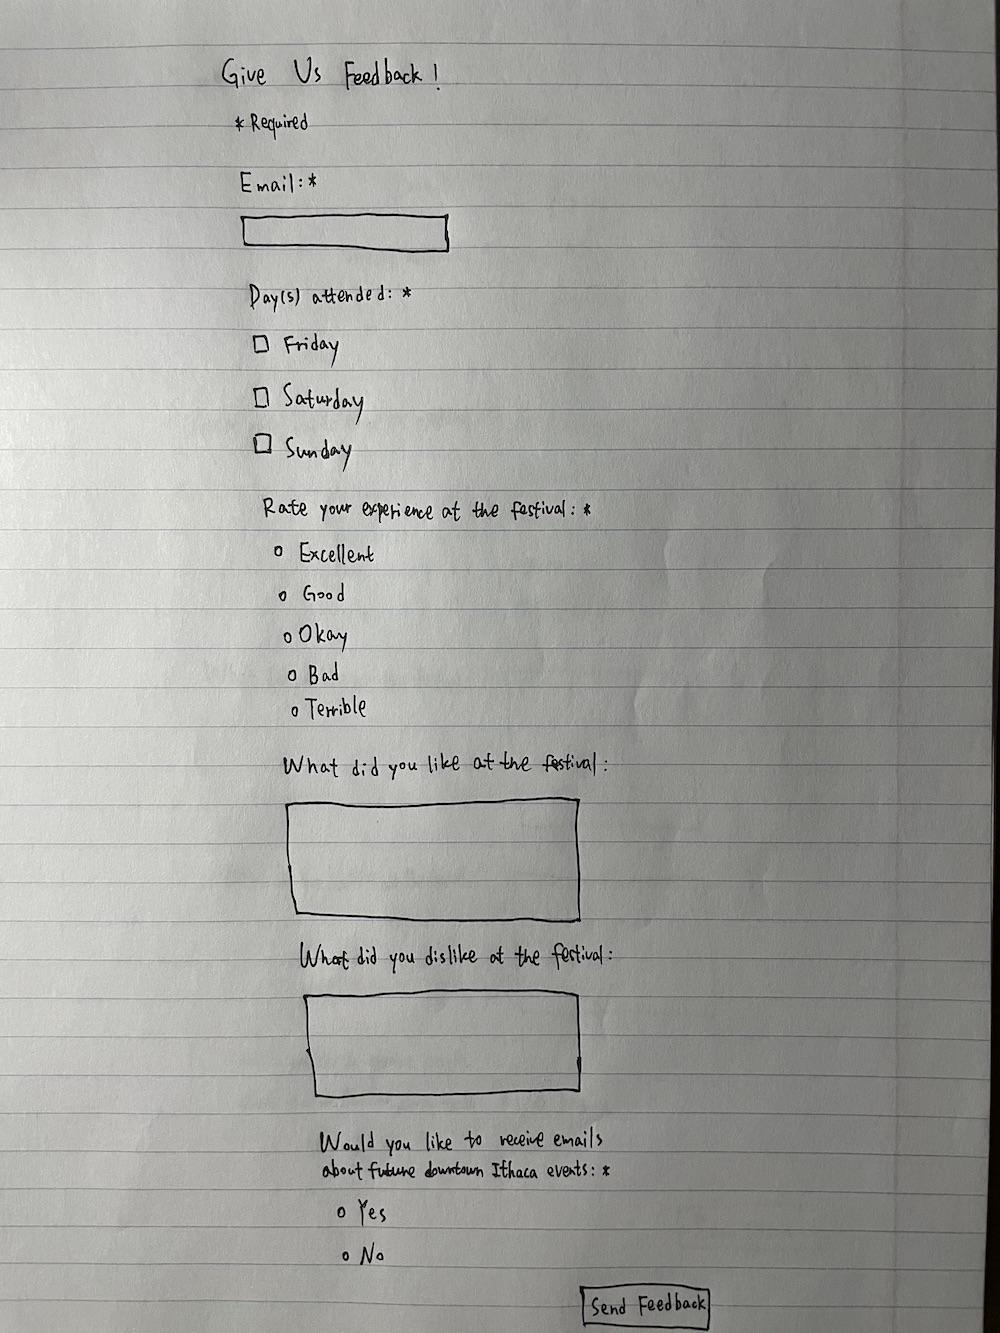 Give Us Feedback!
* Required
Email:*
Day(s) attended: *
Friday
Saturday
Sunday
Rate your experience at the festival: *
Excellent
Good
Okay
Bad
Terrible
What did you like at the festival:
What did you dislike at the festival:
Would you like to receive emails
about future downtown Ithaca events: *
Yes
No
Send Feedback